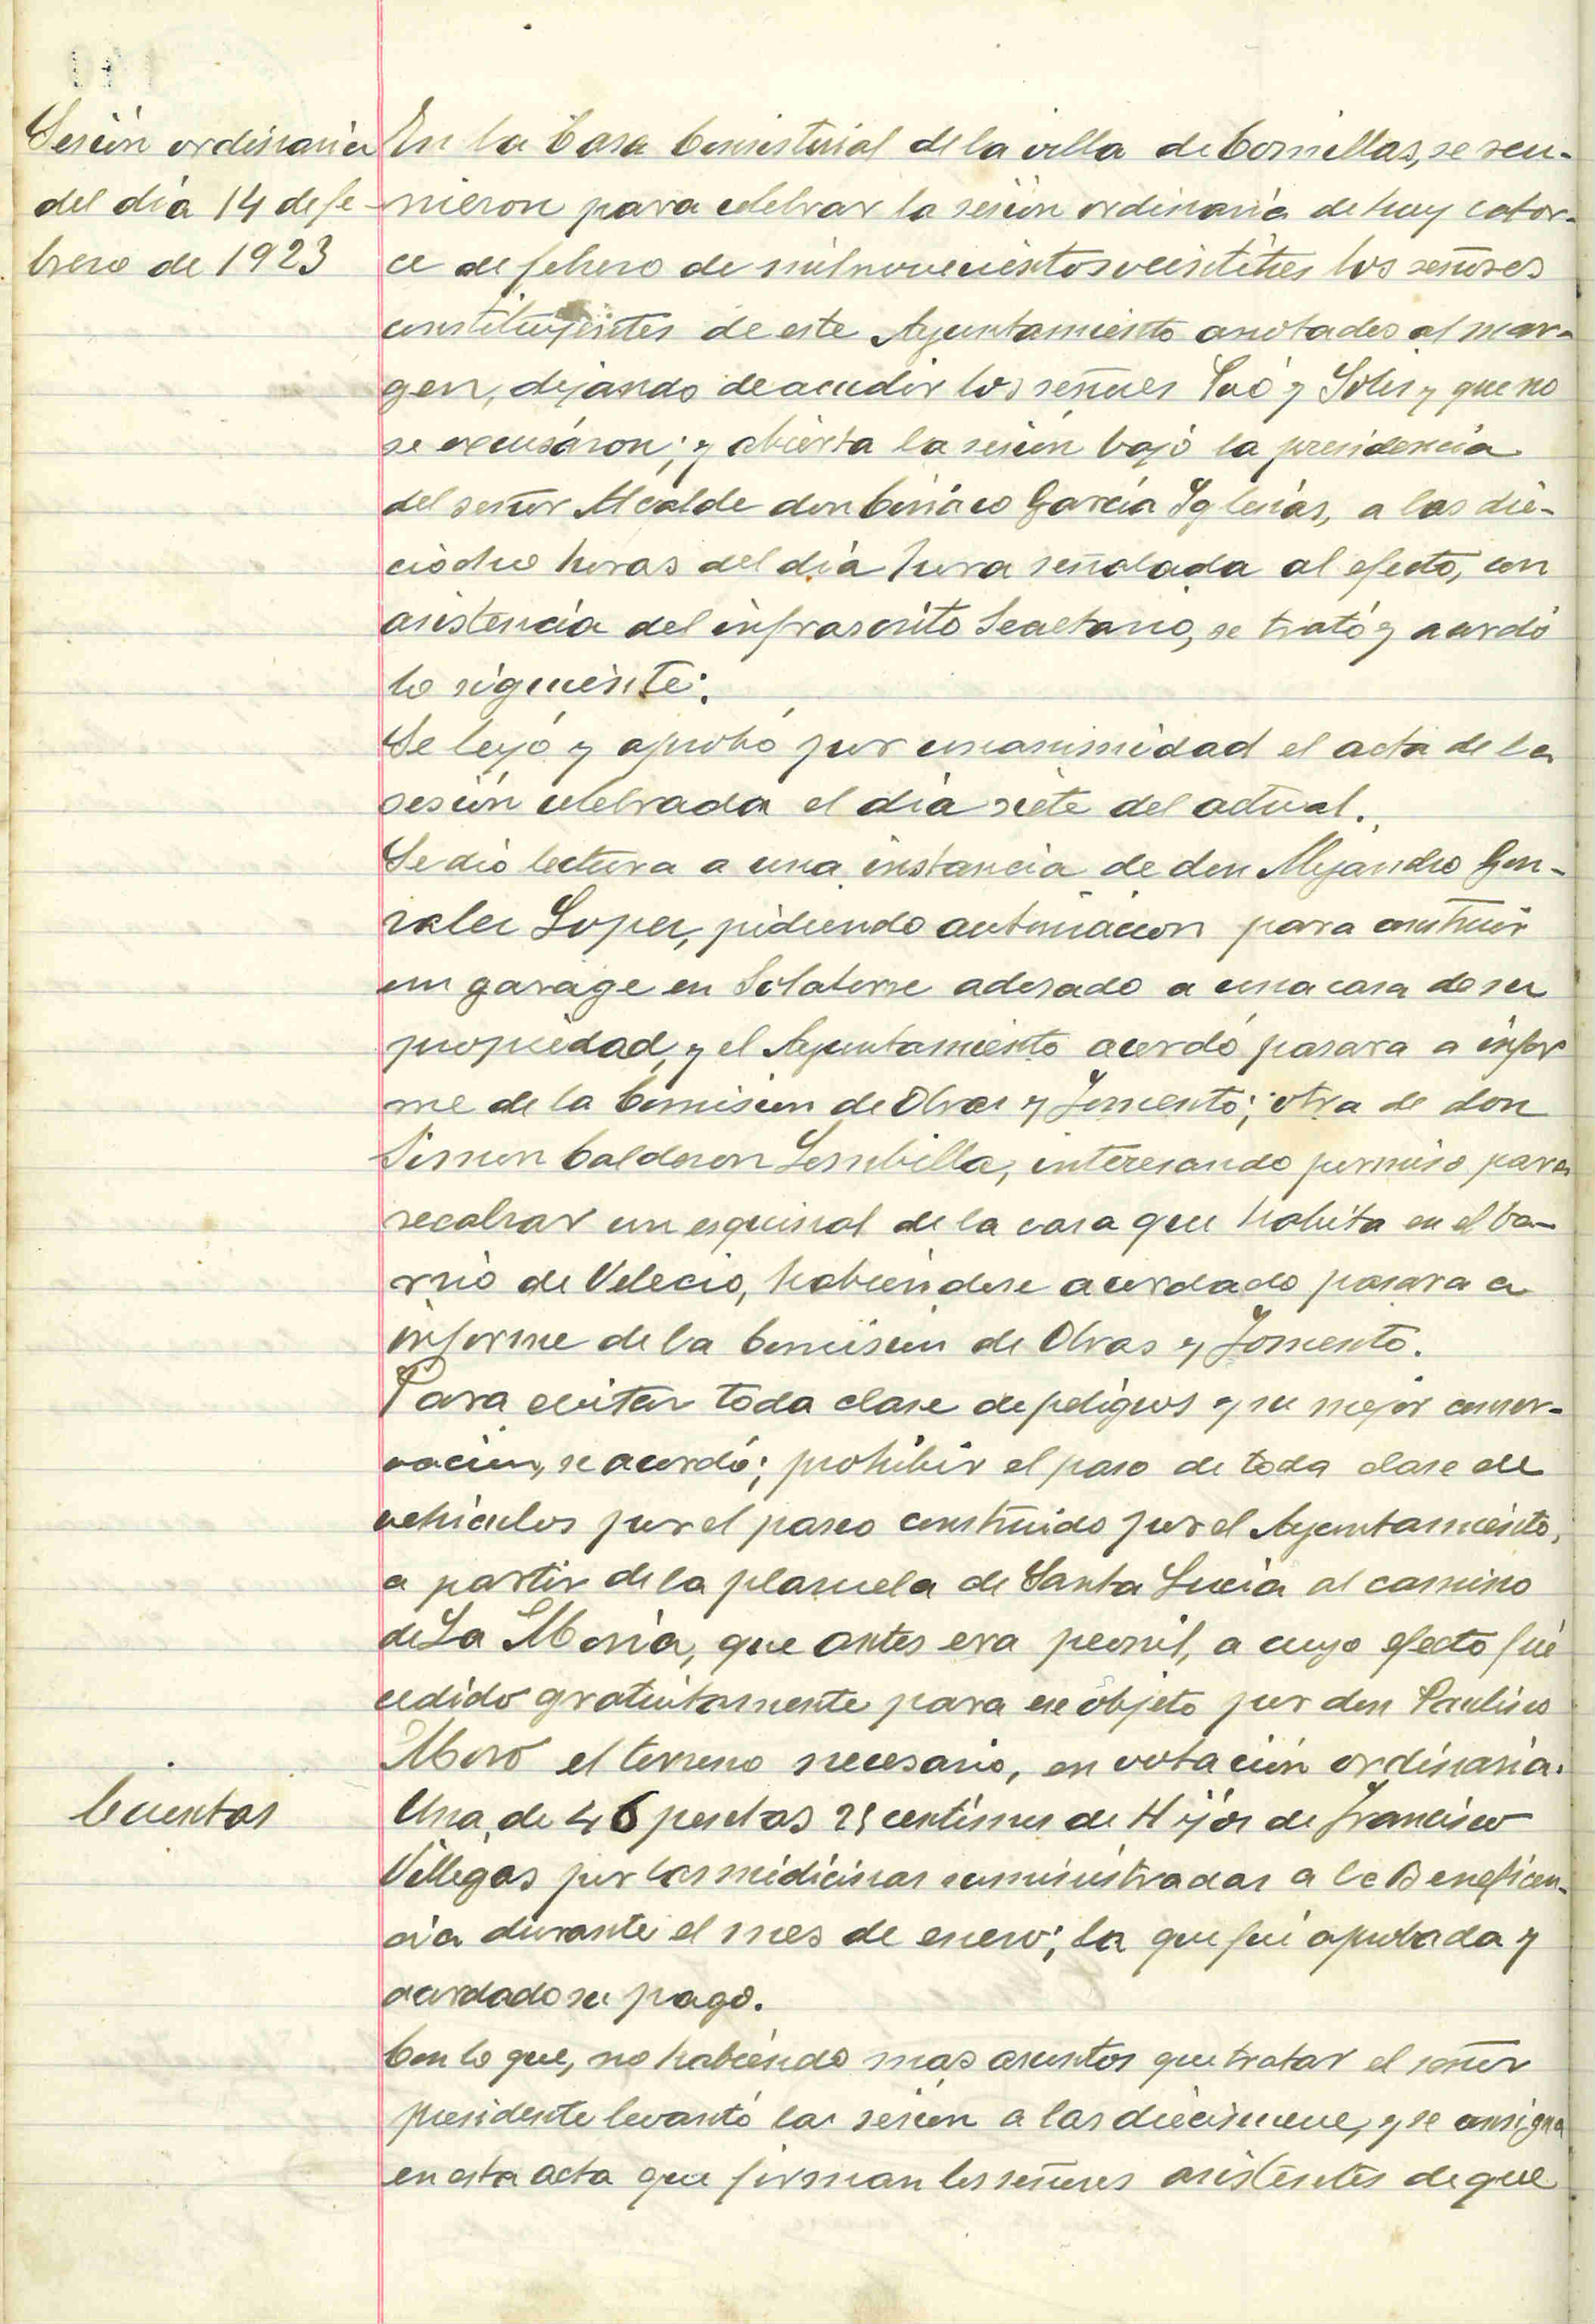 Sesión ordinaria
del día 14 de fe-
brero de 1923
En la Casa Consistorial de la villa de Comillas, se reu-
nieron para celebrar la sesión ordinaria de hoy cator-
ce de febrero de mil novecientos veintitres los señores
constituyentes de este Ayuntamiento anotados al mar-
gen, dejando de acudir los señores y Solis y que no
se excusáron; y abierta la sesión bajo la presidencia
del señor Alcalde don Ciriáco García Yglesias, a las die-
ciocho horas del día hora señalada al efecto, con
asistencia del infrascrito Secretario, se trató y acordó
lo siguiente:
Se leyó y aprobó por unanimidad el acta de la
sesión celebrada el día siete del actual.
Se dió lectura a una instancia de don Alejandro Gon-
zalez Lopez, pidiendo autorización para construir
un garage en Solatorre adosado a una casa de su
propiedad, y el Ayuntamiento acordó pasara a infor
me de la Comisión de Obras y Fomento; otra de don
Simon Calderon Lombilla, interesando permiso para
recalzar un esquinal de la casa que habita en el ba-
rrio de Velecio, habiéndose acordado pasara a
informe de la Comisión de Obras y Fomento.
Para evitar toda clase de peligros y su mejor conser-
vación, se acordó; prohibir el paso de toda clase de
vehículos por el paseo construido por el Ayuntamiento,
a partir de la plazuela de Santa Lucía al camino
de La Moria, que antes era peonil, a cuyo efecto fué
cedido gratuitamente para ese objeto por don Paulino
Moro el terreno necesario, en votación ordinaria.
Cuentas
Una, de 46 pesetas 25 centimos de Hijos de Francisco
Villegas por las medicinas suministradas a la Beneficen-
cia durante el mes de enero; la que fué aprobada y
acordado su pago.
Con lo que, no habiéndo mas asuntos que tratar el señor
presidente levantó la sesión a las diecinueve, y se consigna
en esta acta que firman los señores asistentes de que